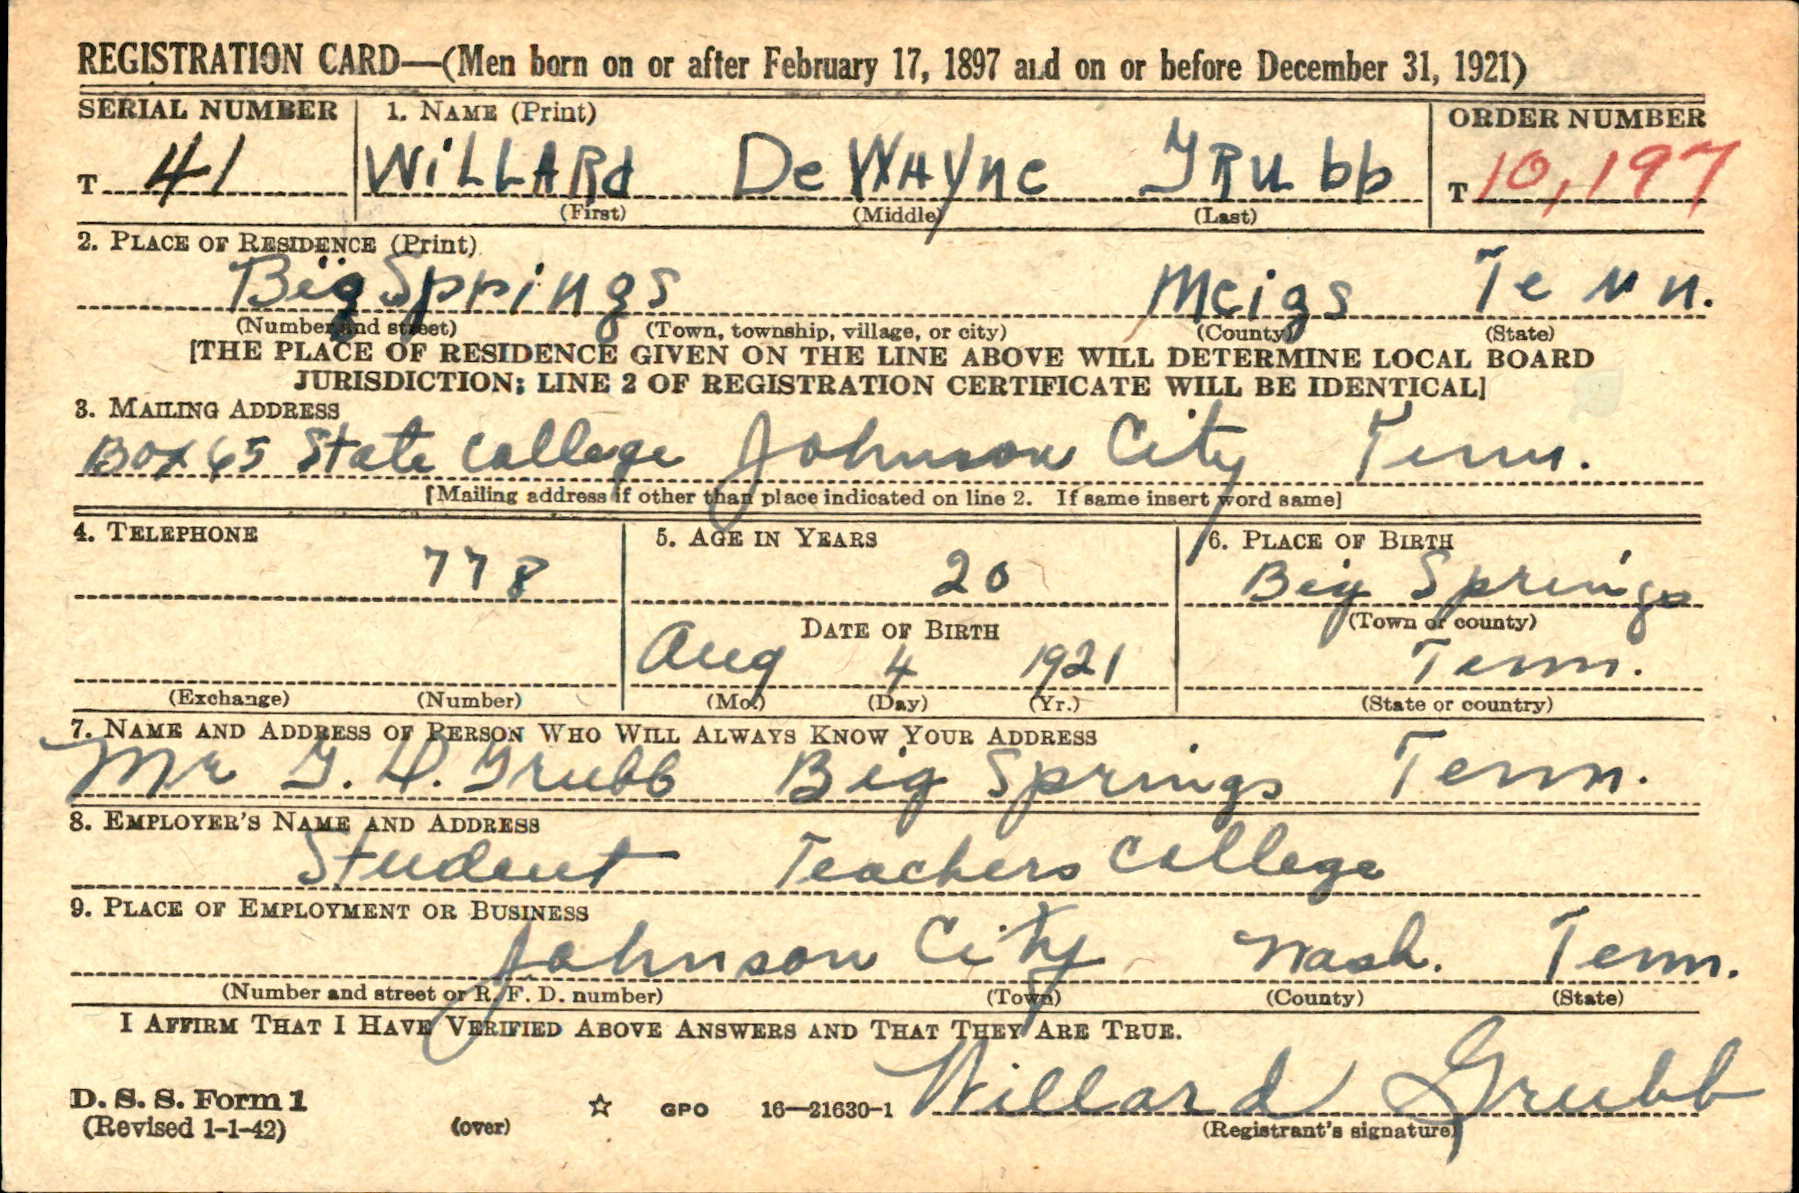 REGISTRATION CARD—(Men born on or after February 17, 1897 and on or before December 31, 1921)
SERIAL NUMBER 1. NAME (Print) ORDER NUMBER
T 41 WiLLARd DeWAyne GRUbb T 10,197
(First) (Middle) (Last)
2. PLACE OF RESIDENCE (Print)
Big Springs Meigs Tenn.
(Number and street) (Town, township, village, or city) (County) (State)
[THE PLACE OF RESIDENCE GIVEN ON THE LINE ABOVE WILL DETERMINE LOCAL BOARD
JURISDICTION; LINE 2 OF REGISTRATION CERTIFICATE WILL BE IDENTICAL]
3. MAILING ADDRESS
Box 65 State College Johnson City Tenn.
[Mailing address if other than place indicated on line 2. If same insert word same]
4. TELEPHONE 5. AGE IN YEARS 6. PLACE OF BIRTH
778 20 Big Springs
DATE OF BIRTH (Town or county)
Aug 4 1921 Tenn.
(Exchange) (Number) (Mo.) (Day) (Yr.) (State or country)
7. NAME AND ADDRESS OF PERSON WHO WILL ALWAYS KNOW YOUR ADDRESS
Mr G. D. Grubb Big Springs Tenn.
8. EMPLOYER'S NAME AND ADDRESS
Student Teachers College
9. PLACE OF EMPLOYMENT OR BUSINESS
Johnson City Wash. Tenn.
(Number and street or R. F. D. number) (Town) (County) (State)
I AFFIRM THAT I HAVE VERIFIED ABOVE ANSWERS AND THAT THEY ARE TRUE.
D. S. S. Form 1 Willard Grubb
(Revised 1-1-42) (over) ☆ GPO 16—21630-1 (Registrant's signature)